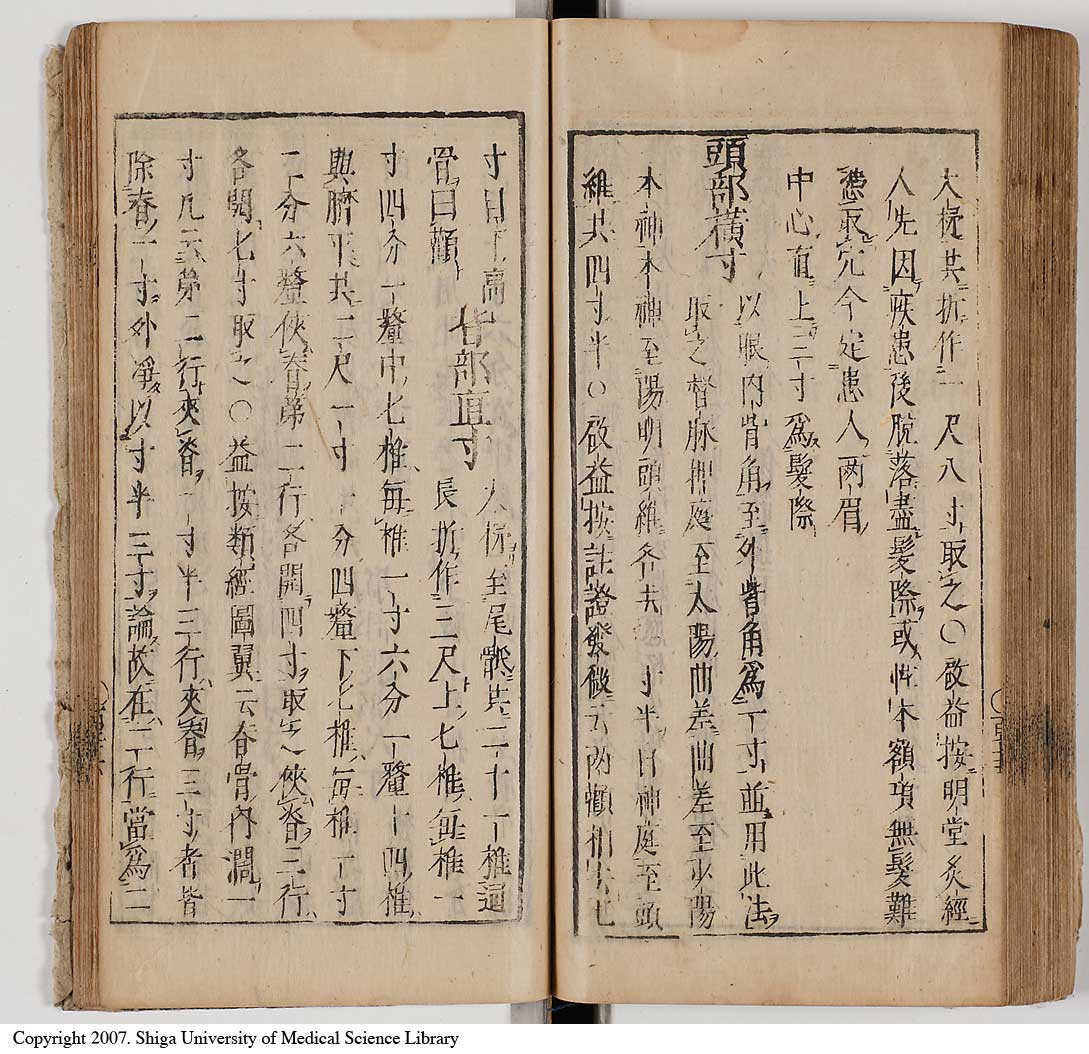 大椎共折作一尺八寸取之○啟益按明堂灸經
人先因疾患後脫落盡髮際或性本額項無髮難
憑取穴今定患人兩眉
中心直上三寸爲髮際
頭部橫寸
以眼內眥角至外眥角爲一寸並用此法
取之督脉神庭至太陽曲差曲差至少陽
本神本神至陽明頭維各去一寸半自神庭至頭
維共四寸半○啟益按註證發微云兩顴相去七
寸目下高
骨曰顴
背部直寸
大椎至尾骶共二十一椎通
長折作三尺上七椎每椎一
寸四分一釐中七椎每椎一寸六分一釐十四椎
與臍平共二尺一寸一分四釐下七椎每椎一寸
二分六釐俠脊第二行各開四寸取之俠脊三行
各開七寸取之○益按類經圖翼云脊骨內濶一
寸凡云第二行夾脊一寸半三行夾脊三寸者皆
除脊一寸外淨以寸半三寸論故在二行當爲二